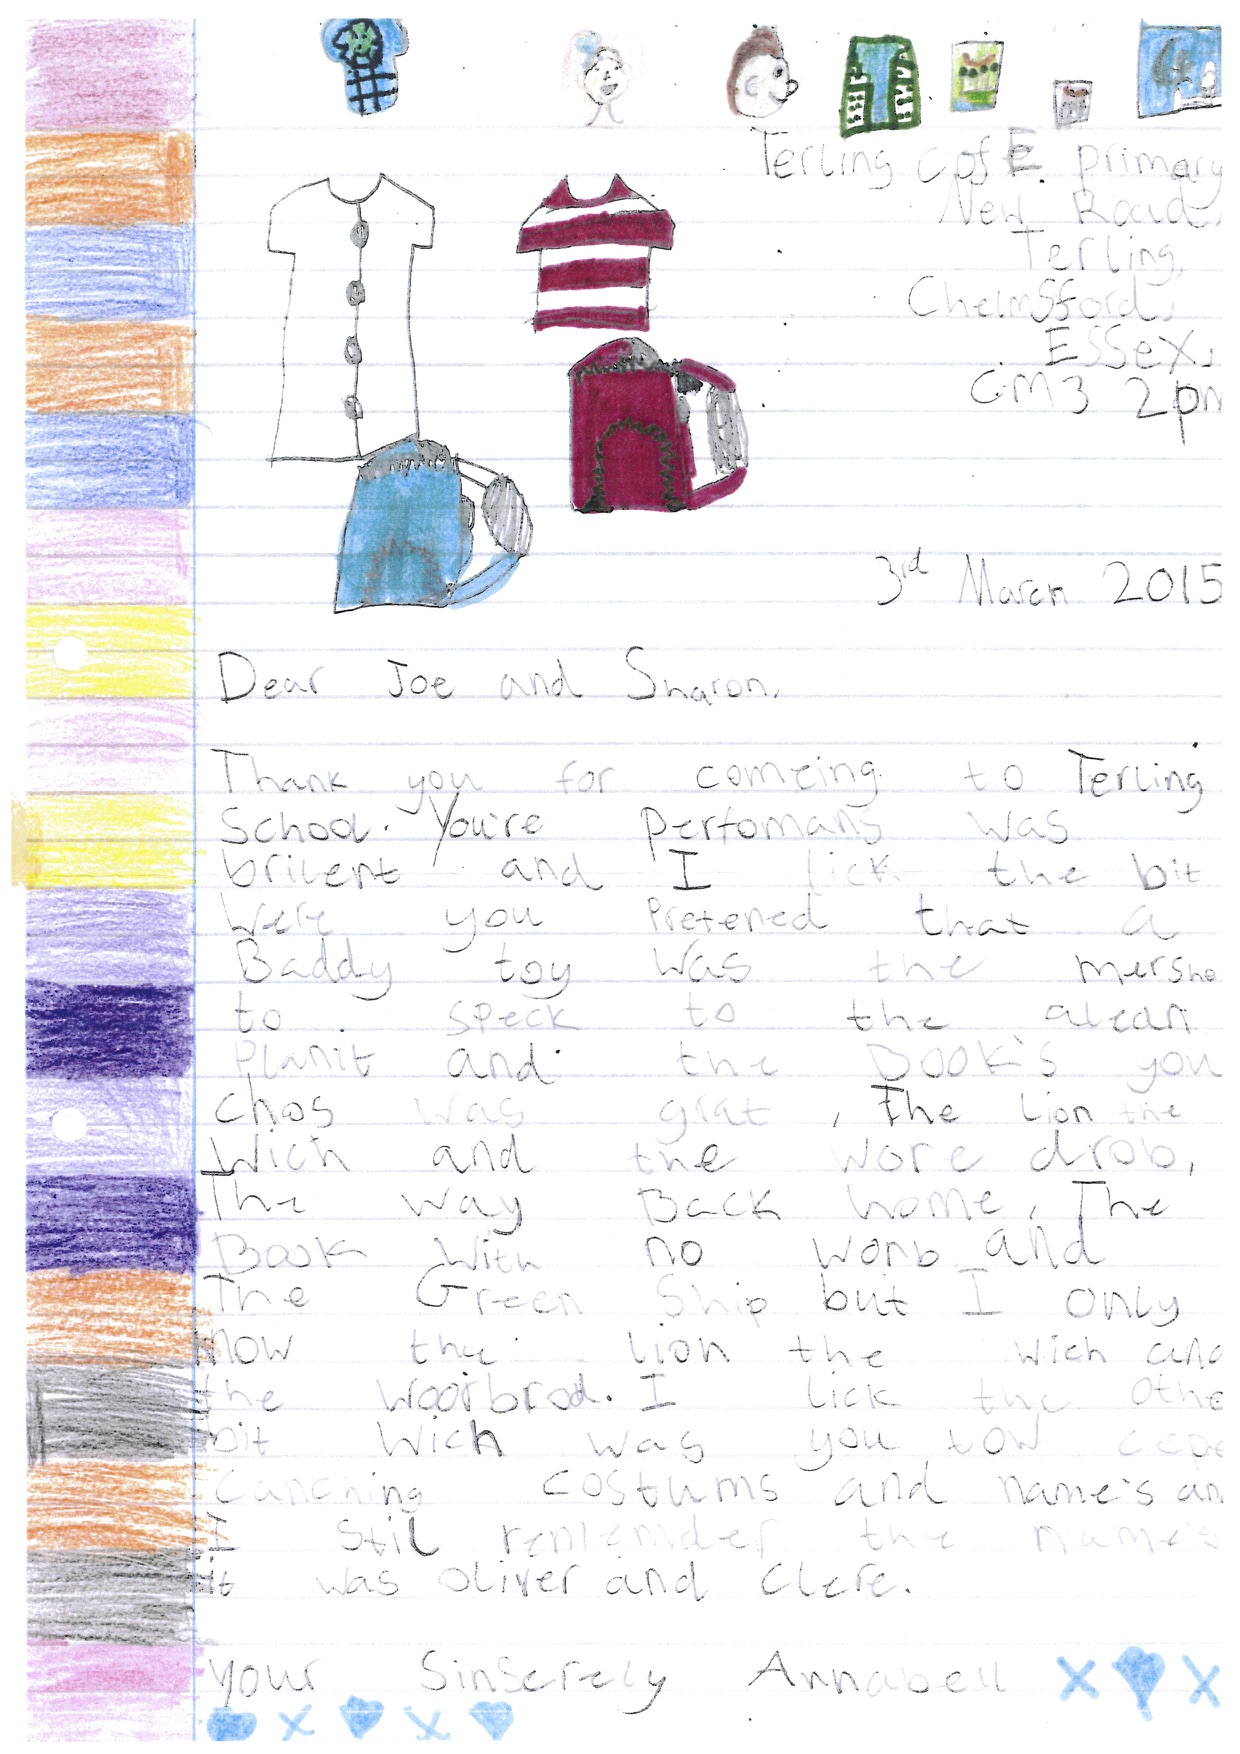 Terling C of E primary
New Road,
Terling,
Chelmsford,
Essex,
CM3 2pn
3rd March 2015
Dear Joe and Sharon,
Thank you for comeing to Terling
School. You're perfomans was
brilent and I lick the bit
Were you Pretened that a
Baddy toy was the
to speck to the alean
Planit and the Book's you
chos was grat, The Lion the
Wich and the wore drob,
The way Back home, The
Book with no worb and
The Green Ship but I only
now the lion the wich and
the woorbrod. I lick the othe
bit Wich was you
costums and name's an
I Stil the name's
it was oliver and Clere.
your Sinserely Annabell